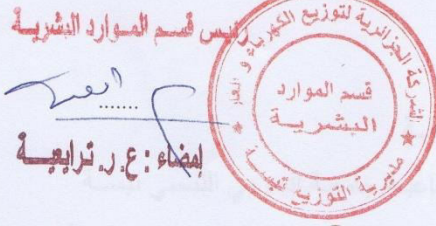 رئيس قسم الموارد البشرية
إمضاء : ع. ر. ترايعية
الشركة الجزائرية لتوزيع الكهرباء و الغاز
قسم الموارد
البشرية
مديرية التوزيع تبسة